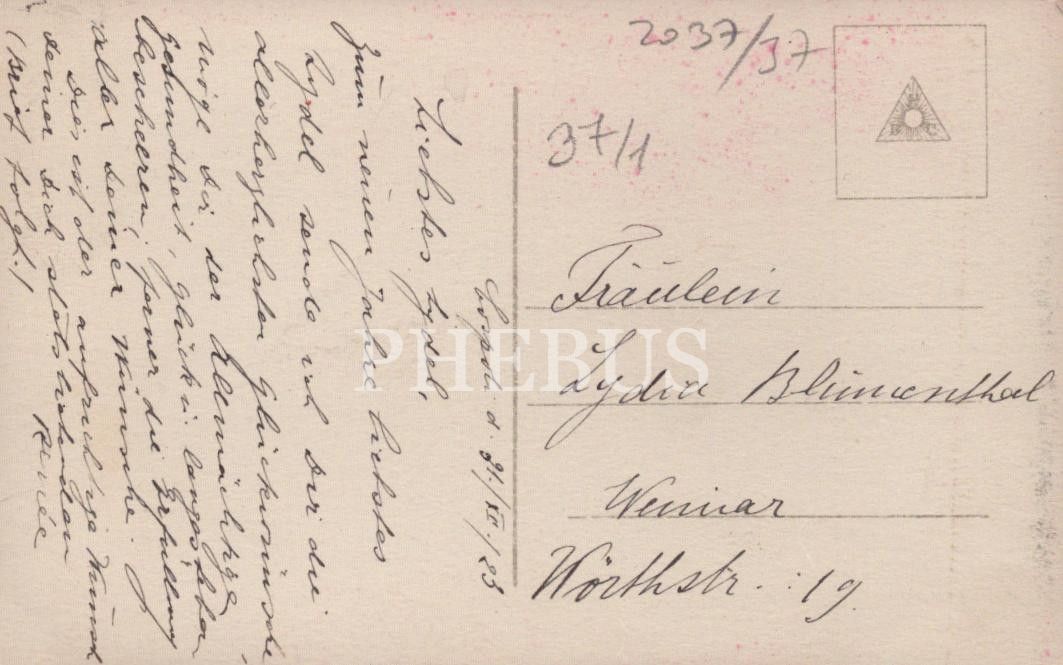 d. 31./XII./23
Liebstes Lydel,
Zum neuen Jahre liebstes
Lydel sende ich Dir die
allerherzlichsten Glückwünsche,
möge Dir der Allmächtige
Gesundheit, Glück u. langes Leben
bescheeren, ferner die Erfüllung
aller Deiner Wünsche.
Dies ist der aufrichtige Wunsch
deiner Dich stets liebenden
Renée
(Brief folgt!)
2037/37
37/1
B C
Fräulein
Lydia Blumenthal
Weimar
Wörthstr. 19.
PHEBUS